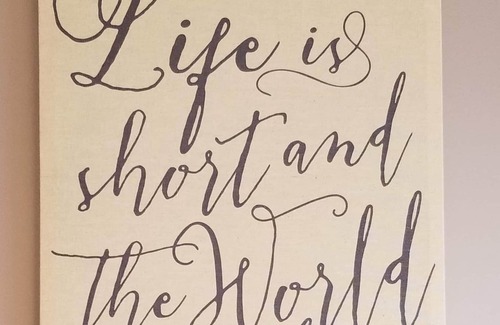 Life is
short and
the World